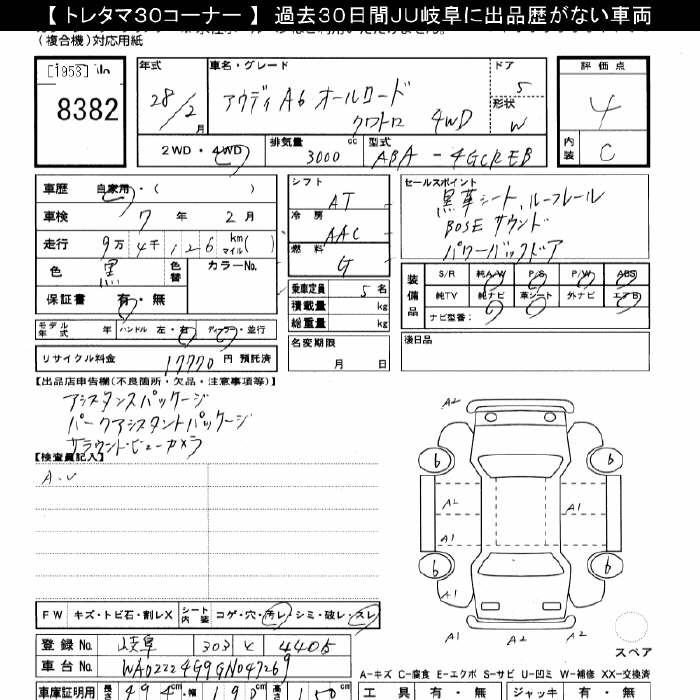 【 トレタマ30コーナー 】 過去30日間JU岐阜に出品歴がない車両
（複合機）対応用紙
[1953]
8382
年式
28/2月
車名・グレード
アウディA6 オールロード
クワトロ 4WD
ドア
5
形状
W
評価点
4
内装
C
2WD ・ 4WD
排気量
3000 cc
型式
ABA - 4GCREB
車歴 自家用 ・ ( )
車検 7 年 2 月
走行 9万 4千 126 km マイル ( )
色 黒 色替 カラーNo.
保証書 有 ・ 無
モデル年式 年 ハンドル 左・右 ディーラー・並行
リサイクル料金 17770 円 預託済
シフト AT
冷房 AAC
燃料 G
乗車定員 5 名
積載量 kg
総重量 kg
名変期限
月 日
セールスポイント
黒革シート、ルーフレール
BOSEサウンド
パワーバックドア
装備品
S/R 純AW P/S P/W ABS
純TV 純ナビ 革シート 外ナビ エアB
ナビ型番：
後日品
【出品店申告欄（不良箇所・欠品・注意事項等）】
アシスタンスパッケージ
パークアシスタントパッケージ
サラウンドビューカメラ
【検査員記入】
A.U
A2
6 6
A2 A1
A1
6 6
A1 A2 A1
スペア
FW キズ・トビ石・割レX シート内装 コゲ・穴・汚レ・シミ・破レ・スレ
登録No. 岐阜 303 4405
車台No. WAUZZZ4G9GN047269
A-キズ C-腐食 E-エクボ S-サビ U-凹ミ W-補修 XX-交換済
車庫証明用 長さ 494cm 幅 190 高さ 150
工具 有 ・ 無 ジャッキ 有 ・ 無